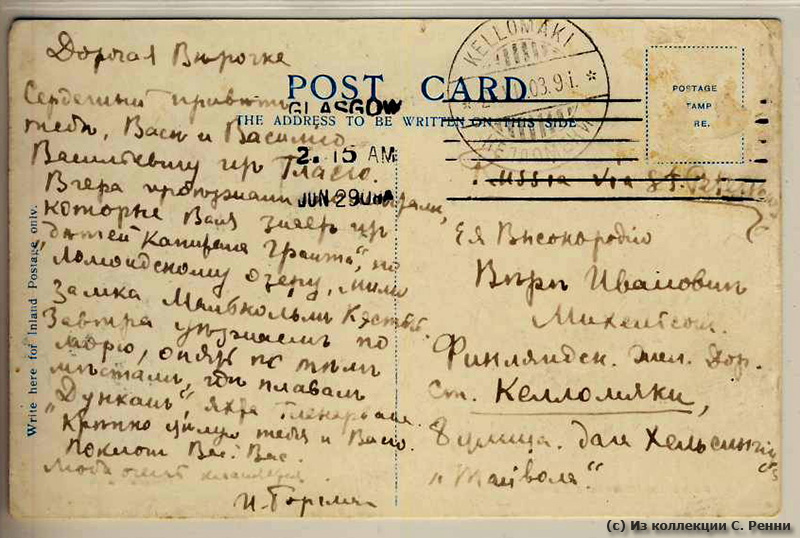 Дорогая Вѣрочка
Сердечный привѣтъ
тебѣ, Васѣ и Василію
Васильевичу изъ Гласго.
Вчера проѣзжали
которые Вася знаетъ изъ
„дѣтей Капитана Гранта“, по
Ломондскому озеру, мимо
замка Малькольмъ Кэстль.
Завтра уѣзжаемъ по
морю, опять по тѣмъ
мѣстамъ, гдѣ плавалъ
„Дунканъ“, яхта Гленарвана.
Крѣпко цѣлую тебя и Васю.
Поклонъ Вас. Вас.
Люба очень кланяется
И.
POST CARD
THE ADDRESS TO BE WRITTEN ON THIS SIDE
GLASGOW
2. 15 AM
JUN 29
KELLOMÄKI
03. 9 i.
POSTAGE
TAMP
RE.
Write here for Inland Postage only.
Russia via St.
Ея Высокородію
Вѣрѣ Ивановнѣ
Михельсонъ.
Финляндск. жел. дор.
ст. Келломяки,
8 улица. дача
„Тайвола“.
(c) Из коллекции С. Ренни